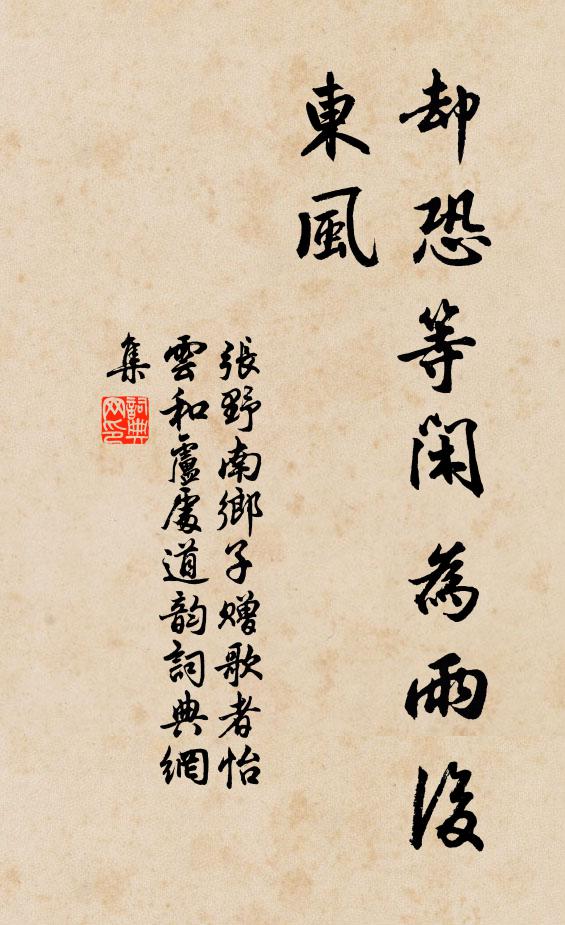 却恐等閑為雨後
東風
張野南鄉子贈歌者怡
雲和盧處道韵詞典網
集
詞典
网印